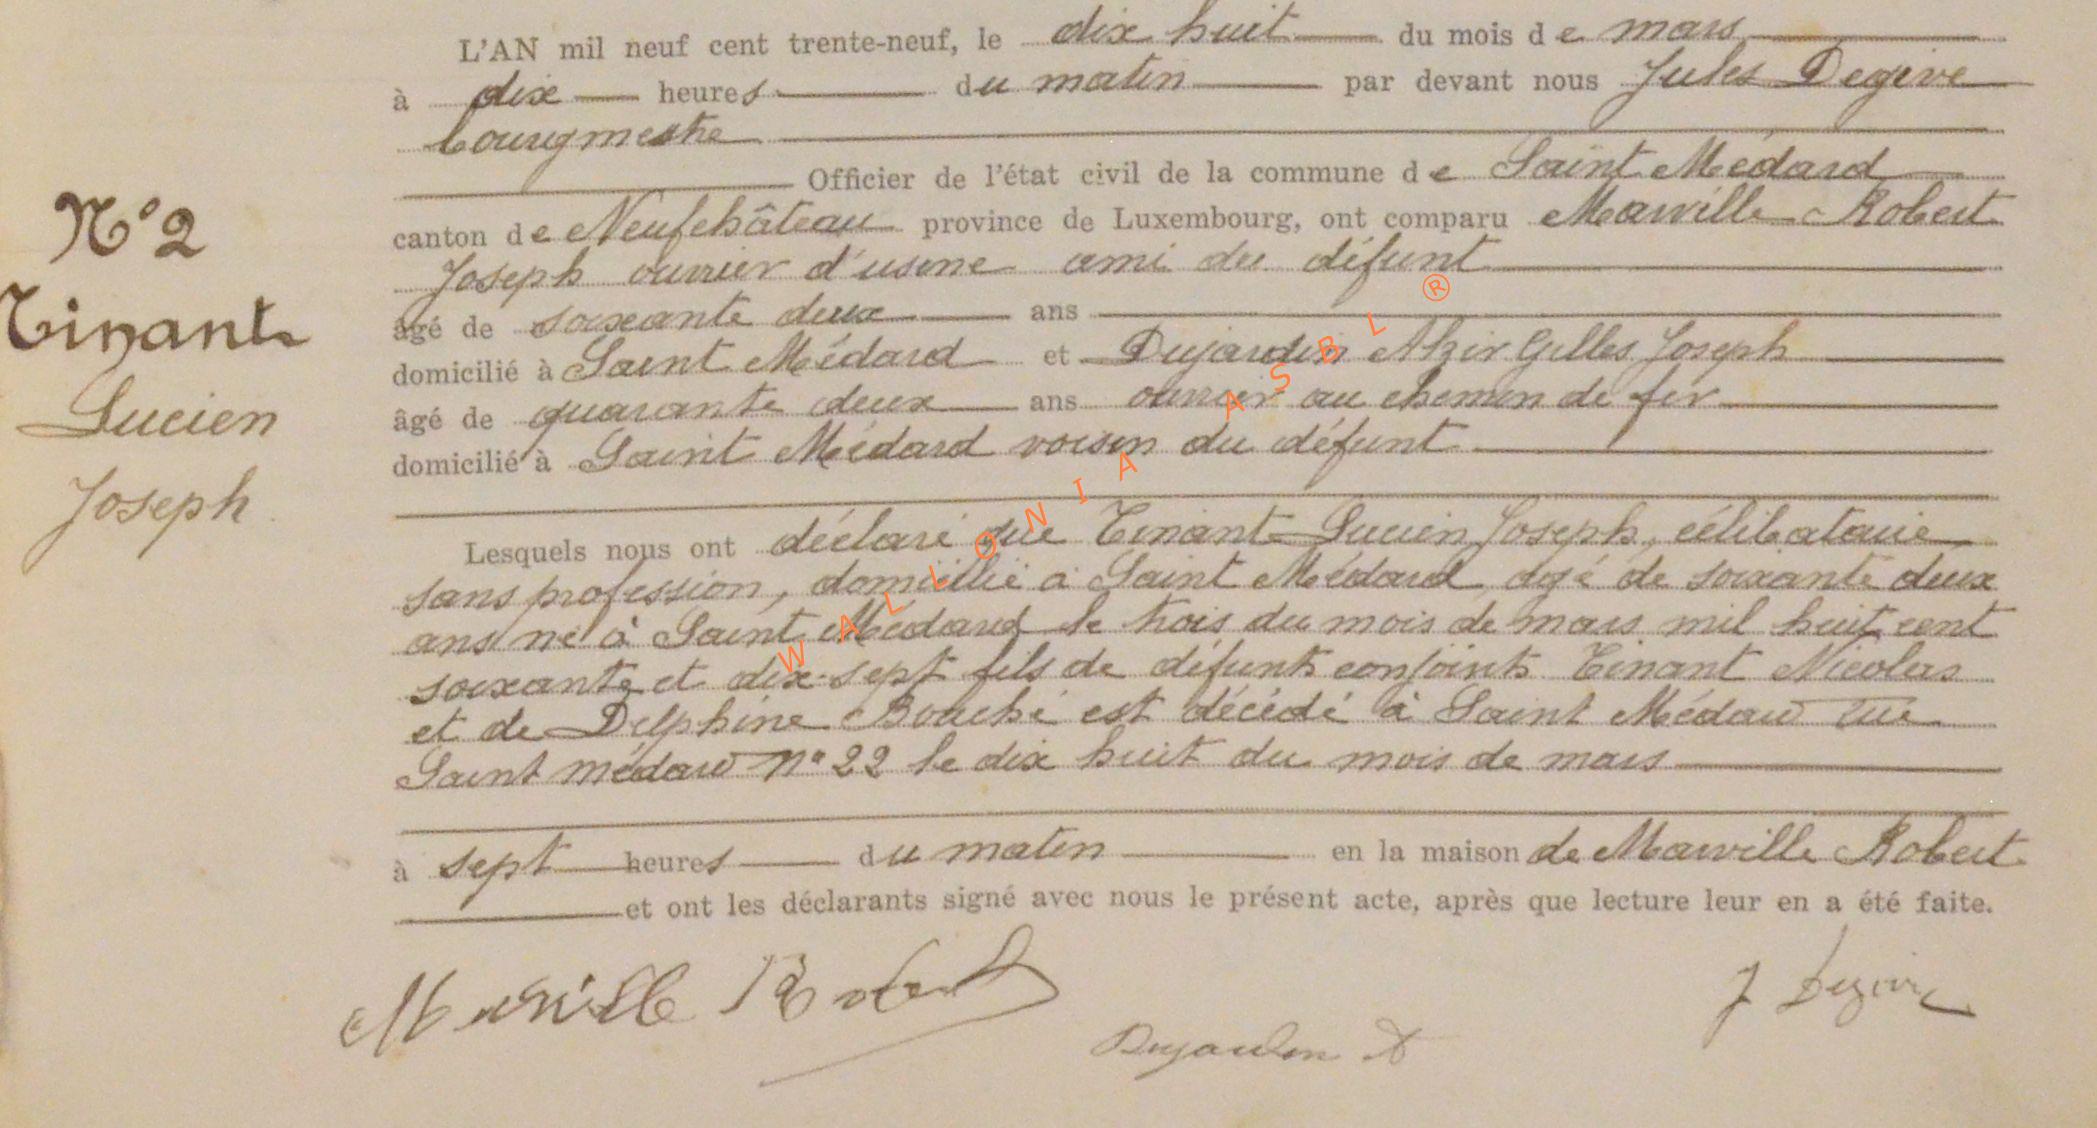 L'AN mil neuf cent trente-neuf, le dix huit du mois de mars
à dix heures du matin par devant nous Jules Degive
bourgmestre
Officier de l'état civil de la commune de Saint Médard
canton de Neufchâteau province de Luxembourg, ont comparu Marville Robert
Joseph ouvrier d'usine ami du défunt
âgé de soixante deux ans
domicilié à Saint Médard et Dujardin Alzir Gilles Joseph
âgé de quarante deux ans ouvrier au chemin de fer
domicilié à Saint Médard voisin du défunt
Lesquels nous ont déclaré que Tinant Lucien Joseph, célibataire
sans profession, domicilié à Saint Médard, agé de soixante deux
ans né à Saint Médard le trois du mois de mars mil huit cent
soixante et dix-sept fils de défunts conjoints Tinant Nicolas
et de Delphine Bouché est décédé à Saint Médard rue
Saint médard n° 22 le dix huit du mois de mars
à sept heures du matin en la maison de Marville Robert
et ont les déclarants signé avec nous le présent acte, après que lecture leur en a été faite.
N° 2
Tinant
Lucien
Joseph
Marville Robert
Dujardin A
J Degive
WALLONIA ASBL ®